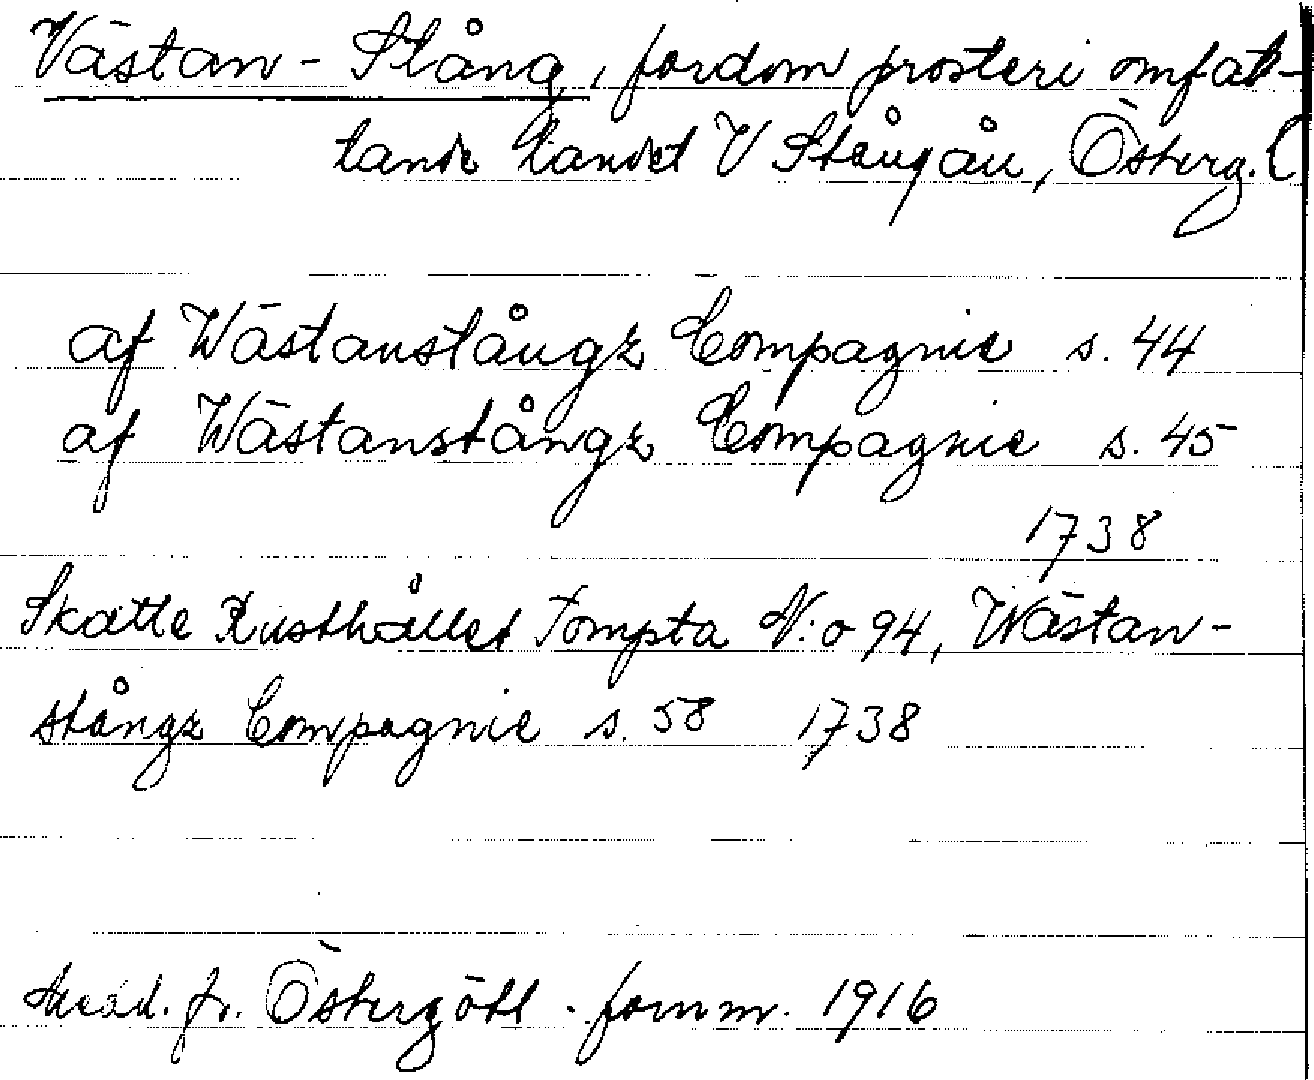 Västan-Stång, fordom prosteri omfat-
tande landet V Stångån, Österg.
af Wästanstångz Compagnie s. 44
af Wästanstångz Compagnie s. 45
1738
Skatte Rusthållet Tompta N:o 94, Wästan-
stångz Compagnie s. 58 1738
Medd. fr. Östergötl. fornm. 1916